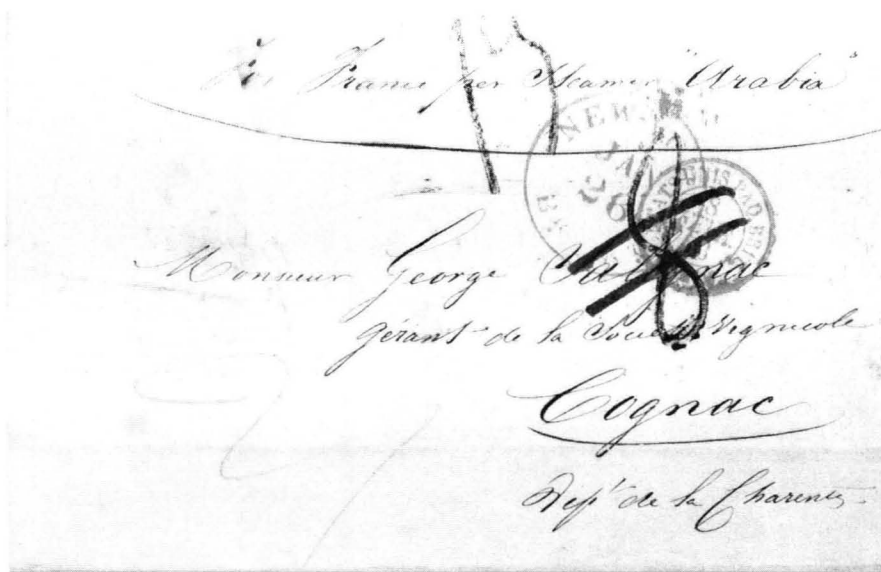 For France per Steamer "Arabia"
15
NEW
JAN
8
Monsieur George Salignac
gérant de la Société Vignicole
Cognac
Dept de la Charente